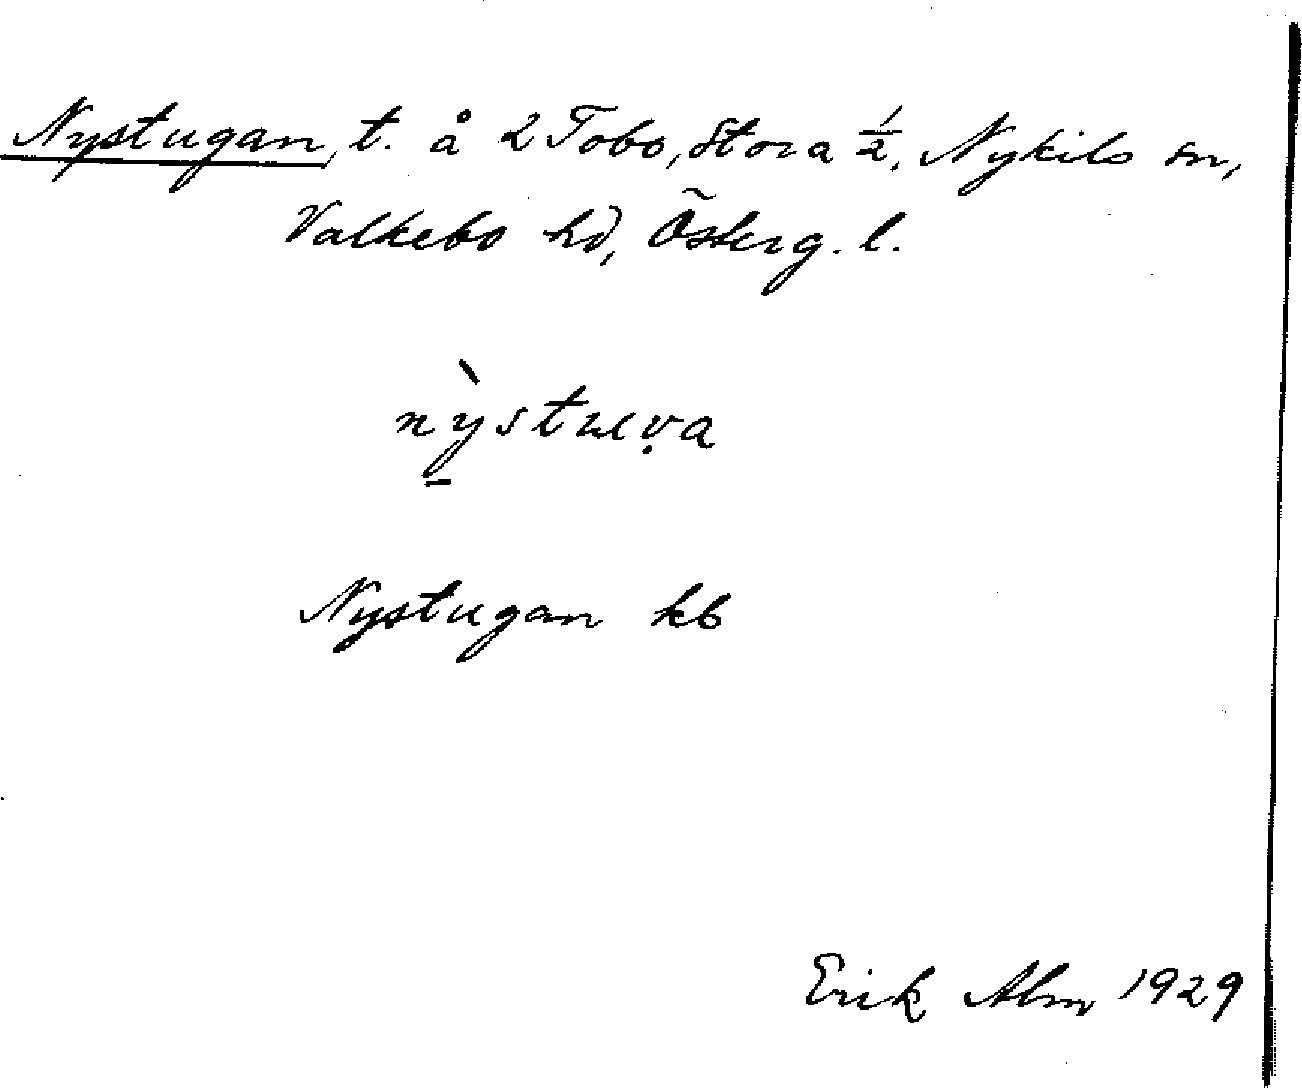 Nystugan, t. å 2 Tobo, Stora 1/2, Nykils sn,
Valkebo hd, Österg. l.
nỳstuṿa
Nystugan kb
Erik Alm 1929